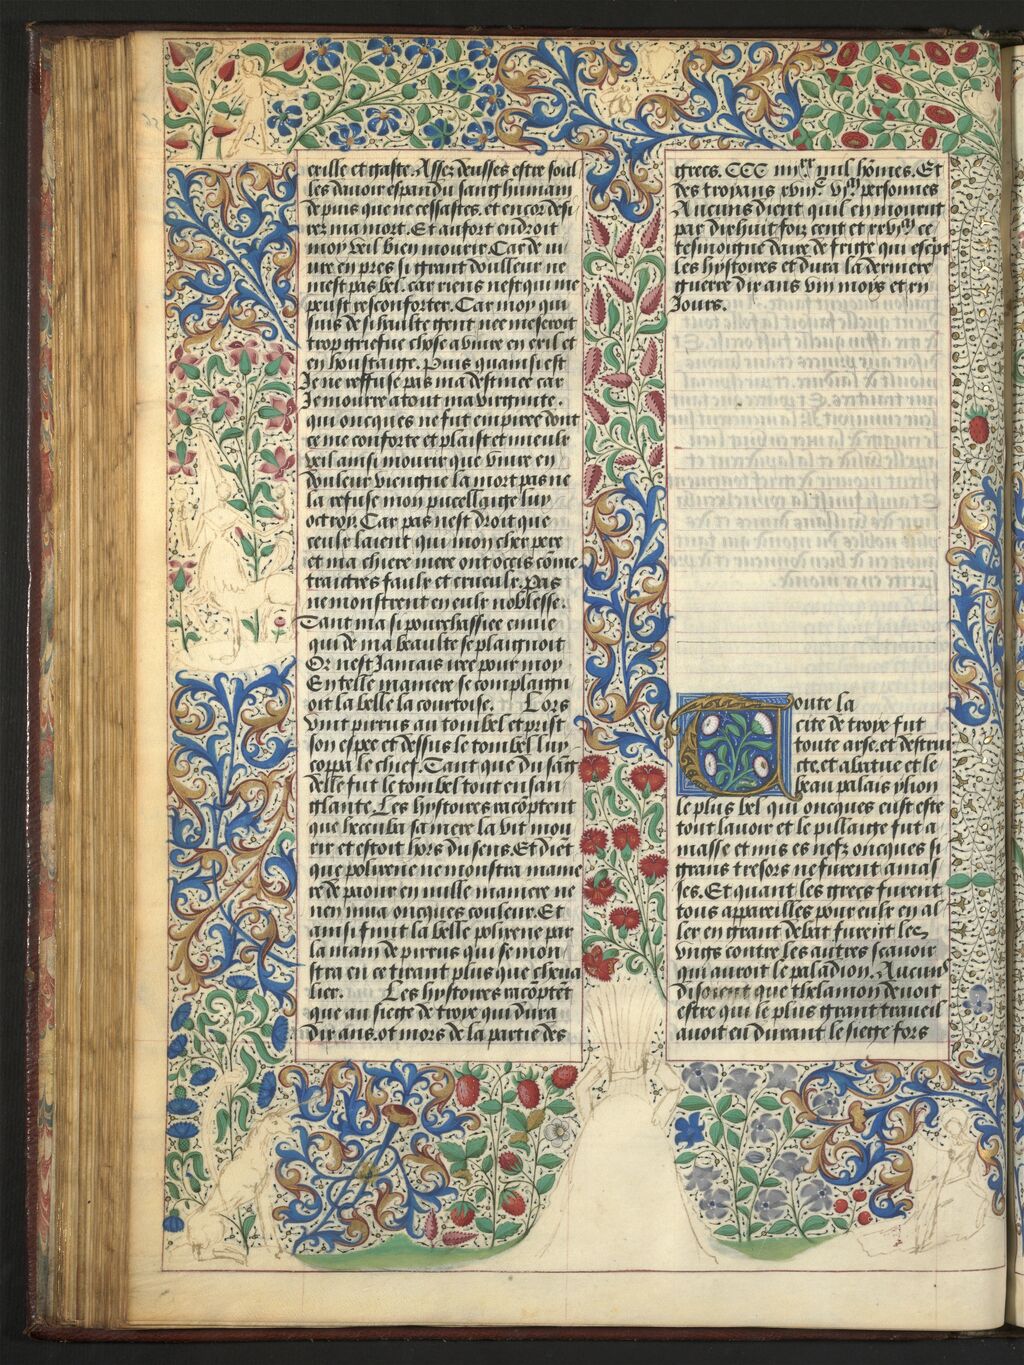 exille et gaste. Assez deusses estre soul
les davoir espandu sang humain
depuis que ne cessastes. et encor desi
rez ma mort. Et aufort endroit
moy veil bien mourir Car de vi
vre en pres si grant doulleur ne
mest pas bel. car riens nest qui me
peust resconforter. Car moy qui
suis de si haulte gent nee me seroit
trop griefue chose a vivre en exil et
en houstaige. Puis quainsi est
Je ne reffuse pas ma destinee car
Je mourre atout ma virginite.
qui oncques ne fut empiree dont
ce me conforte et plaist et mieulx
veil ainsi mourir que vivre en
douleur viengne la mort pas ne
la refuse mon pucellaige luy
octroy. Car pas nest droit que
ceulx laient qui mon cher pere
et ma chiere mere ont occis cõme
traictres faulx et crueulx. Pas
ne monstrent en eulx noblesse.
Tant ma si pourchassiee envie
qui de ma beaulte se plaignoit
Or nest Jamais iree pour moy
En telle maniere se complaign
oit la belle la courtoise. Lors
vint pirrus au tombel et prist
son espee et dessus le tombel luy
coppa le chief. Tant que du sãg
delle fut le tombel tout ensan
glante. Les hystoires racõptent
que heccuba sa mere la vit mou
rir et estoit hors du sens. Et diẽt
que polixene ne monstra manie
re de paour en nulle maniere ne
nen mua oncques couleur. Et
ainsi finit la belle polixene par
la main de pirrus qui se mon
stra en ce tirant plus que cheva
lier. Les hystoires racõptẽt
que au siege de troye qui dura
dix ans. ot mors de la partie des
grecs. CCC iiiixx mil hõmes. Et
des troyans xviiic vim personnes
Aucuns dient quil en mourut
par dixhuit foiz cent et xxvim ce
tesmoigne daire de frige qui escpt
les hystoires et dura la derniere
guerre dix ans viii moys et xii
Jours.
Toute la
cite de troye fut
toute arse. et destrui
cte. et abatue et le
beau palais ylion
le plus bel qui oncques eust este
tout lavoir et le pillaige fut a
masse et mis es nefz oncques si
grans tresors ne furent amas
ses. Et quant les grecs furent
tous appareilles pour eulx en al
ler en grant debat furent les
vngs contre les autres scavoir
qui auroit le paladion. Aucuns
disoient que thelamon devoit
estre qui le plus grant traveil
avoit en durant le siege fors